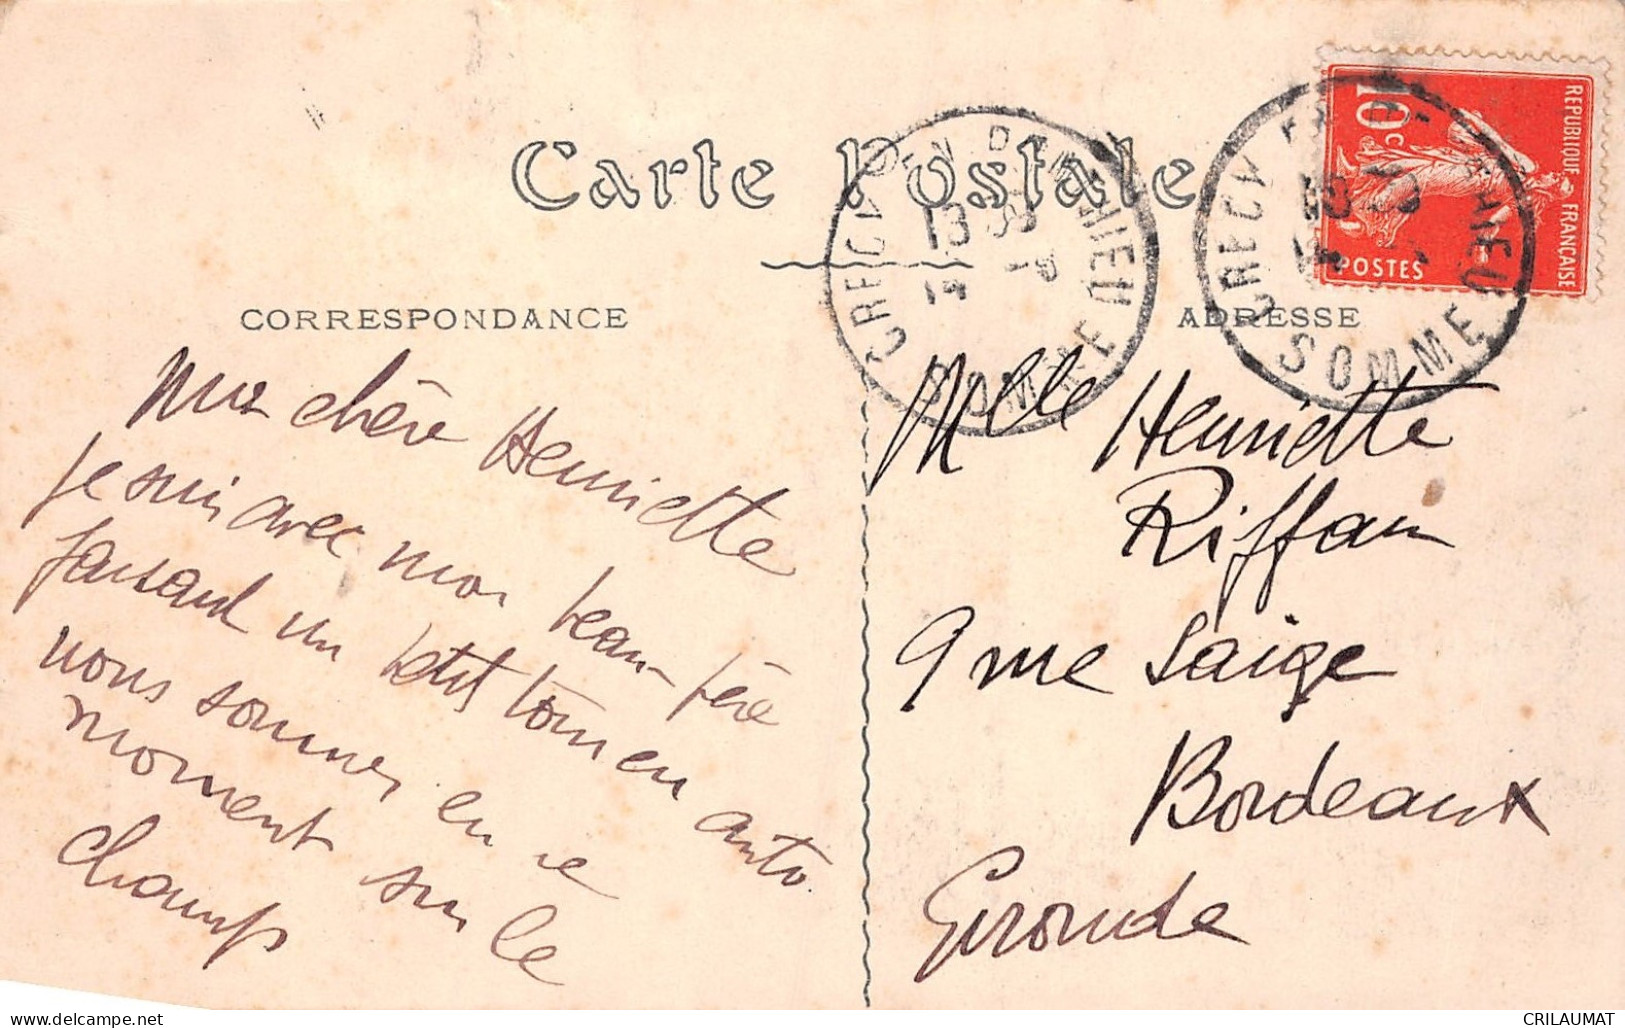 Carte Postale
CORRESPONDANCE
ADRESSE
REPUBLIQUE FRANÇAISE
10c
POSTES
CRECY EN PONTHIEU
SOMME
13
CRECY
SOMME
Ma chère Henriette
Je suis avec mon beau-père
faisant un petit tour en auto.
nous sommes en ce
moment sur le
champ
Mlle Henriette
Riffan
9 rue Saige
Bordeaux
Gironde
www.delcampe.net
CRILAUMAT